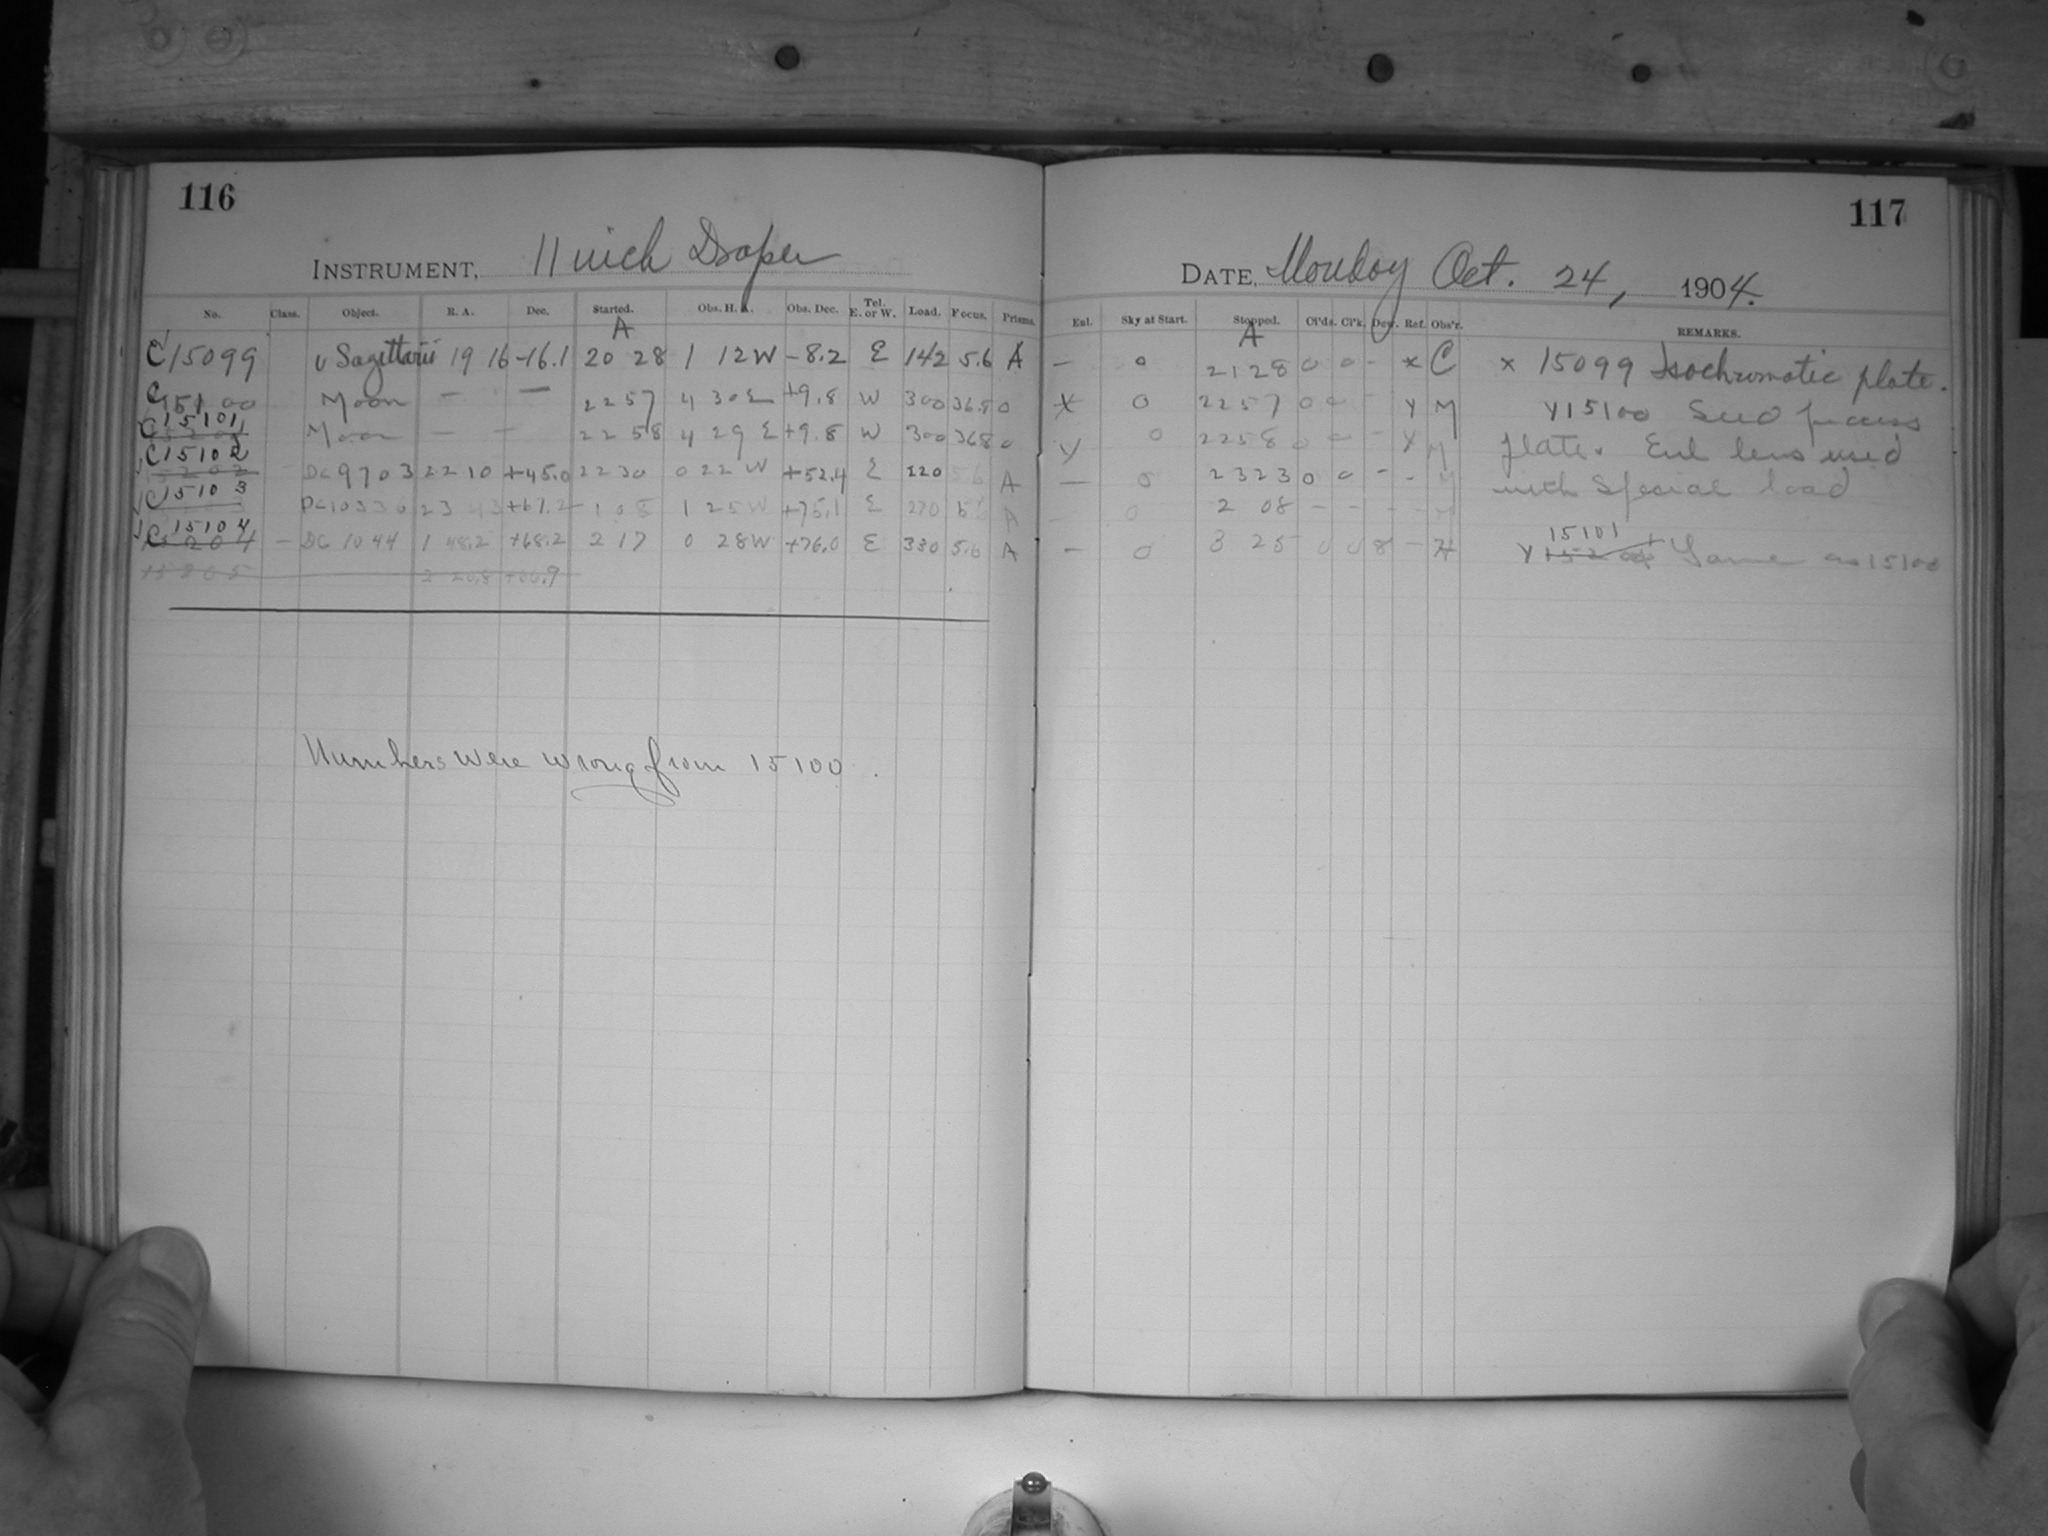 116
INSTRUMENT, 11 inch Draper
No. Class. Object. R. A. Dec. Started. Obs. H. A. Obs. Dec. Tel. E. or W. Load. Focus. Prisms.
A
C15099 υ Sagittarii 19 16 -16.1 20 28 1 12W -8.2 E 142 5.6 A
C15100 Moon — — 22 57 4 30E +9.8 W 300 36.8 0
C15101 Moon — — 22 58 4 29 E +9.8 W 300 368 0
C15102 — DC9703 22 10 +45.0 22 30 0 22 W +52.4 E 120 5.6 A
C15103 DC10336 23 43 +67.2 1 08 1 25W +75.1 E 270 5.6 A
C15104 — DC 1044 1 48.2 +68.2 2 17 0 28W +76.0 E 330 5.6 A
15205 2 20.8 +66.9
Numbers were wrong from 15100.
117
DATE, Monday Oct. 24, 1904.
Enl. Sky at Start. Stopped. Cl'ds. Cl'k. Dew. Ref. Obs'r. REMARKS.
A
— 0 21 28 0 0 - x C x 15099 Isochromatic plate.
X 0 22 57 0 0 - Y M Y15100 Seed process
Y 0 22 58 0 0 - Y M plate. Enl lens used
— 0 23 23 0 0 - - M with special load
0 2 08 - - - - M
— 0 3 25 0 0 8 - H
15101
Y Same as 15100